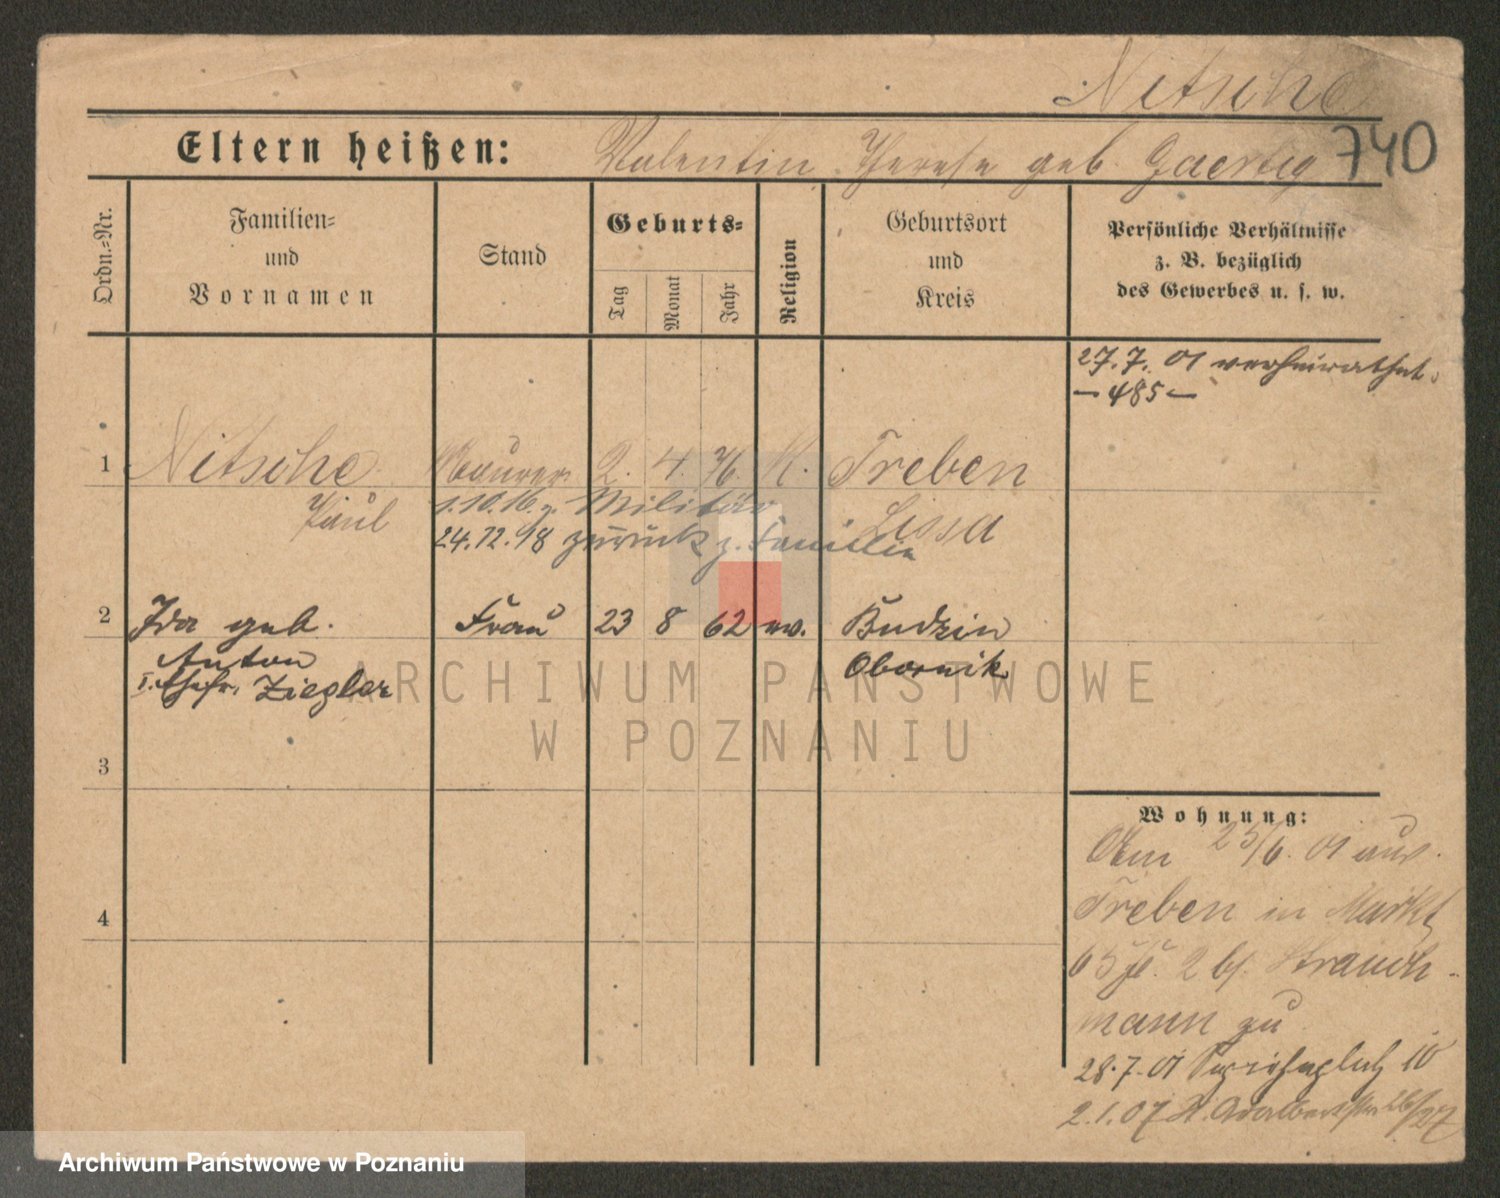 Nitsche
Eltern heißen: Valentin, Therese geb. Gaertig 740
Ordn.-Nr.
Familien-
und
Vornamen
Stand
Geburts-
Tag
Monat
Jahr
Religion
Geburtsort
und
Kreis
Persönliche Verhältnisse
z. B. bezüglich
des Gewerbes u. s. w.
27.7. 01 verheirathet.
— 485 —
1 Nitsche Maurer 2. 4. 76. K. Treben
Paul
1.10.16. z. Militär
Lissa
24.12.18 zurück z. Familie
2 Ida geb. Frau 23 8 62 ev. Budzin
Anton
Obornik
I. Ehefr. Ziegler
3
4
Wohnung:
Am 25/6. 01 aus
Treben in Markt
65 2 bei Strauch-
mann zu
28.7.01 10
2.1.07 Adalbertstr 26/27
ARCHIWUM PAŃSTWOWE
W POZNANIU
Archiwum Państwowe w Poznaniu